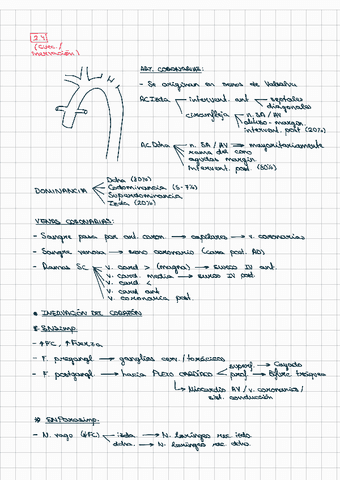 2.4
(cor./
inervación)
ART. CORONARIAS:
- Se originan en senos de Valsalva
AC Izda intervent. ant septales
diagonales
circunfleja n. SA / AV
obtuso-margin.
intervent. post (20%)
AC Dcha n. SA / AV → mayoritariamente
rama del cono
agudas margin
Intervent. post (80%)
DOMINANCIA
Dcha (80%)
Codominancia (5-7%)
Superdominancia
Izda (20%)
VENAS CORONARIAS:
- Sangre pasa por art. coron. → capilares → v. coronarias
- Sangre venosa → seno coronario (cara post. AD)
- Ramas SC
v. card > (magna) → surco IV ant.
v. card. media → surco IV post.
v. card <
v. card ant
v. coronaria post.
INERVACIÓN DEL CORAZÓN
SNsimp.
- ↑FC, ↑Fuerza
- F. pregangl → ganglios cerv./torácicos
- F. postgangl → hacia PLEXO CARDÍACO superf. → Cayado
prof → Bifurc traquea
Miocardio AV / v. coronarias /
sist. conducción
SNParasimp.
- N. vago (↓FC) izda. → N. laríngeo rec. izdo.
dcha. → N. laríngeo rec. dcho.